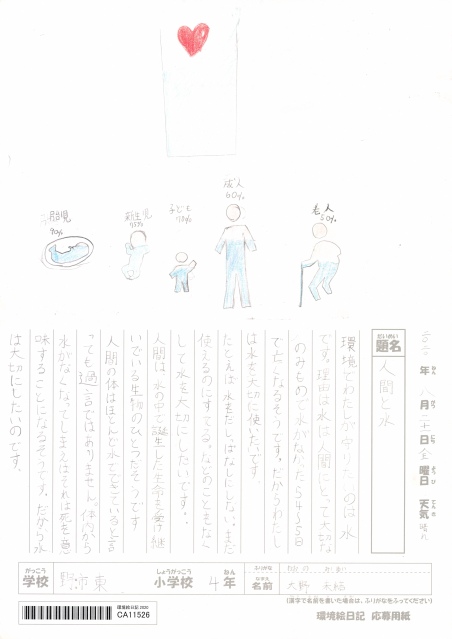 胎児
90%
新生児
75%
子ども
70%
成人
60%
老人
50%
年 八月二十日 金曜日 天気 晴れ
題名 人間と水
環境でわたしが守りたいのは水
です。理由は水は人間にとって大切な
のみもので水がなかったら4〜5日
で亡くなるそうです。だからわたし
は水を大切に使いたいです。
たとえば水をだしっぱなしにしない、まだ
使えるのにすてる。などのこともなく
して水を大切にしたいです。
人間は、水の中で誕生した生命を受け継
いでいる生物のひとつだそうです
人間の体はほとんど水でできていると言
っても過言ではありません。体内から
水がなくなってしまえばそれは死を意
味することになるそうです。だから水
は大切にしたいのです。
がっこう 学校 東
しょうがっこう 小学校 4年
ふりがな
なまえ 名前 大野
(漢字で名前を書いた場合は、ふりがなをふってください)
環境絵日記 2020
CA11526
環境絵日記 応募用紙